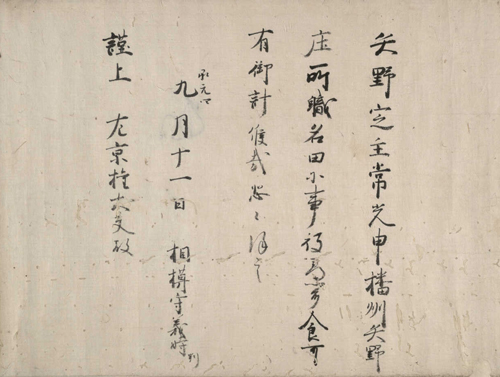 矢野定主常光申播州矢野
庄所職名田小事
有御計候哉恐々謹言
承元四
九月十一日 相模守義時判
謹上 左京権大夫殿